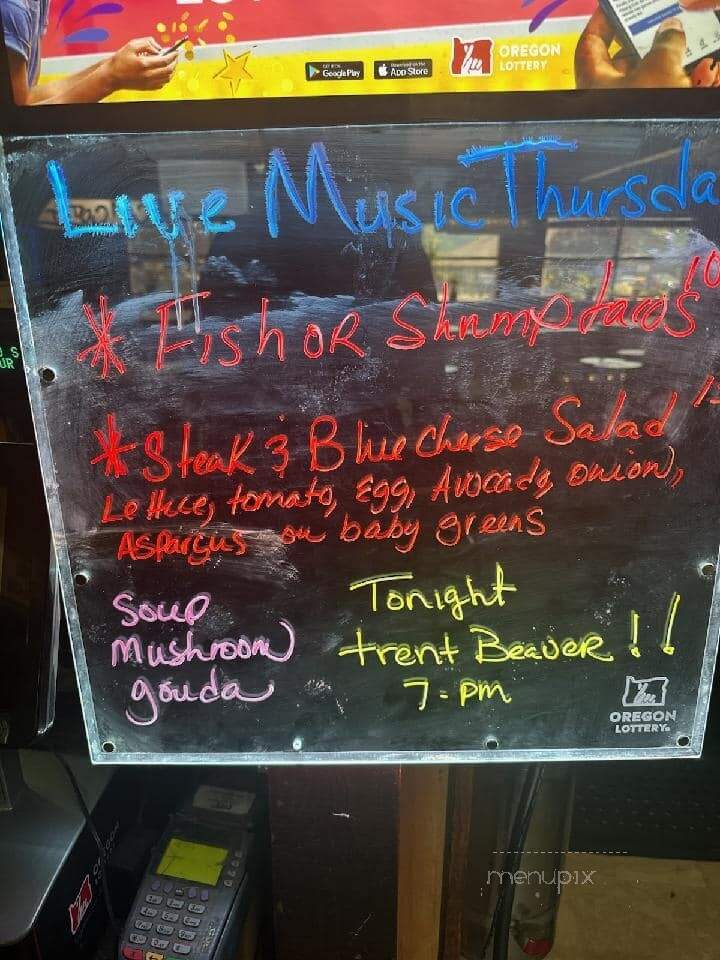 GET IT ON
Google Play
Download on the
App Store
OREGON
LOTTERY
Live Music Thursda
* Fish OR Shrimp tacos 10
* Steak & Blue cheese Salad
Lettuce, tomato, Egg, Avocado, onion,
Aspargus on baby greens
Soup
Mushroom
gouda
Tonight
trent Beaver !!
7-pm
OREGON
LOTTERY®
menupix